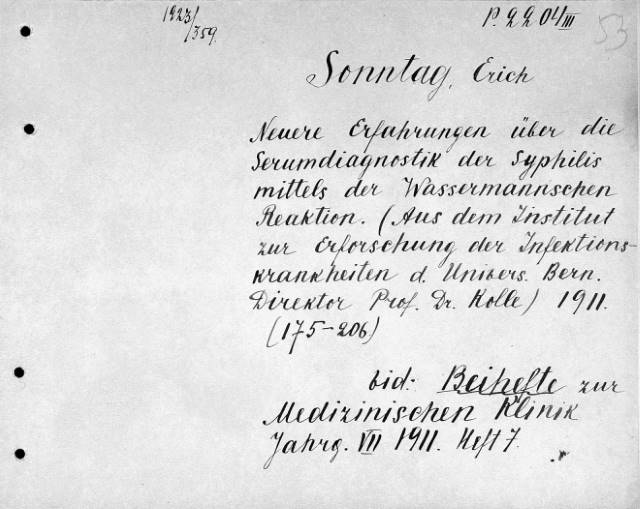 1923/359.
P. 2204 III
53
Sonntag, Erich
Neuere Erfahrungen über die
Serumdiagnostik der Syphilis
mittels der Wassermannschen
Reaktion. (Aus dem Institut
zur Erforschung der Infektions-
krankheiten d. Univers. Bern.
Direktor Prof. Dr. Kolle) 1911.
(175-206)
bid: Beihefte zur
Medizinischen Klinik
Jahrg. VII 1911. Heft 7.